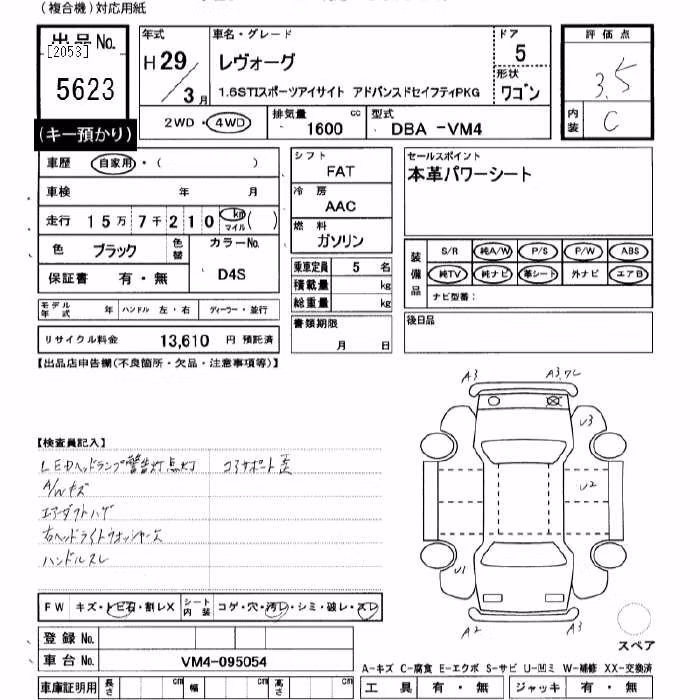 (複合機)対応用紙
出品No.
[2053]
5623
(キー預かり)
年式
H29/3月
車名・グレード
レヴォーグ
1.6STIスポーツアイサイト アドバンスドセイフティPKG
ドア
5
形状
ワゴン
2WD・4WD
排気量
1600 cc
型式
DBA -VM4
評価点
3.5
内装
C
車歴 自家用・( )
車検 年 月
走行 15万7千210 km マイル( )
色 ブラック 色替
カラーNo.
D4S
保証書 有・無
モデル年式 年 ハンドル 左・右 ディーラー・並行
リサイクル料金 13,610 円 預託済
シフト
FAT
冷房
AAC
燃料
ガソリン
乗車定員 5 名
積載量 kg
総重量 kg
書類期限
月 日
セールスポイント
本革パワーシート
装備品
S/R 純A/W P/S P/W ABS
純TV 純ナビ 革シート 外ナビ エアB
ナビ型番:
後日品
【出品店申告欄(不良箇所・欠品・注意事項等)】
【検査員記入】
LEDヘッドランプ警告灯点灯 コアサポート歪
A/Wキズ
エアダクトハゲ
右ヘッドライトウォッシャー欠
ハンドルスレ
A3
A3,7C
U3
U2
U1
A2
A3
スペア
FW キズ・トビ石・割レX シート内装 コゲ・穴・汚レ・シミ・破レ・スレ
登録No.
車台No. VM4-095054
車庫証明用 長さ cm 幅 cm 高さ cm
A-キズ C-腐食 E-エクボ S-サビ U-凹ミ W-補修 XX-交換済
工具 有・無 ジャッキ 有・無